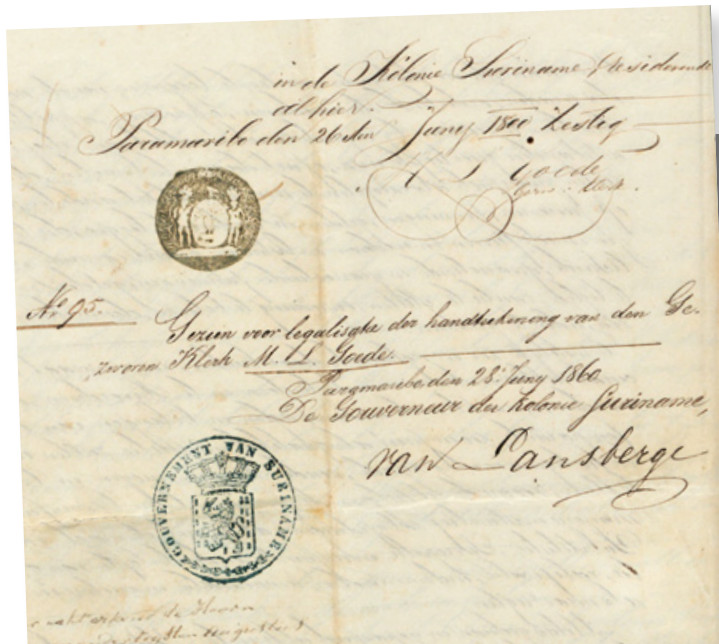 in de Kolonie Suriname, residerende
al hier.
Paramaribo den 26sten Juny 1800 Zestig
Goede
Gezw: Klerk.
No 95.
Gezien voor legalisatie der handteekening van den Ge-
zworen Klerk M. L. Goede.
Paramaribo den 28 Juny 1860
De Gouverneur der Kolonie Suriname,
van Lansberge
GOUVERNEMENT VAN SURINAME